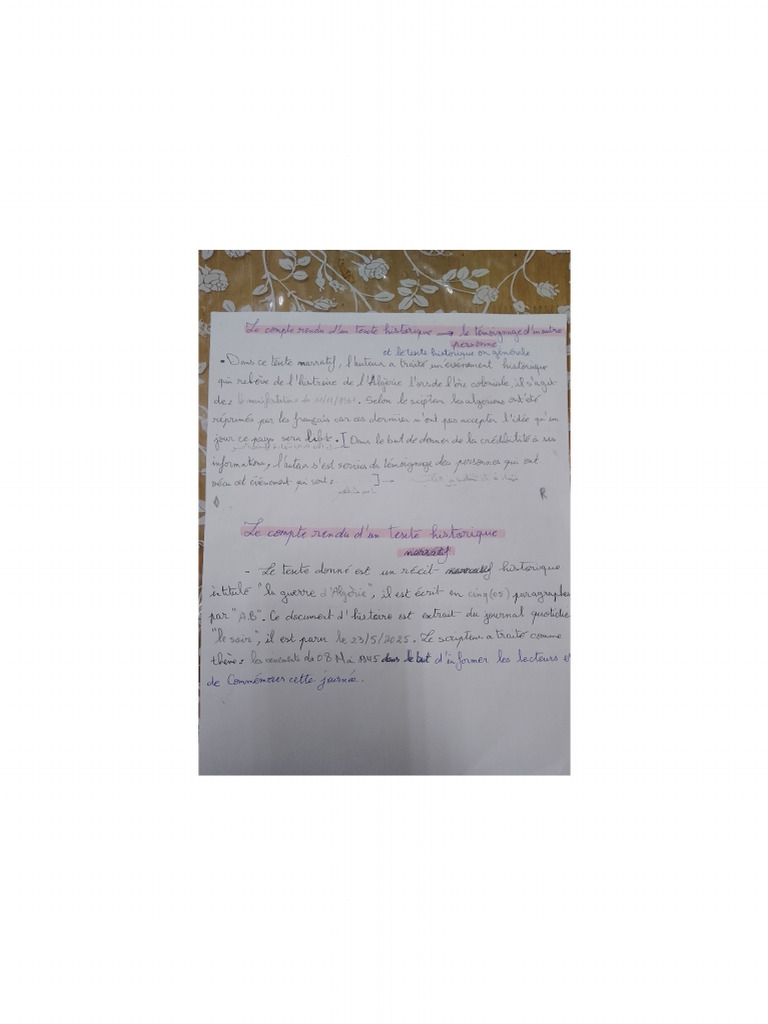 Le compte rendu d'un texte historique → le témoignage d'un autre
personne
et le texte historique en générale
- Dans ce texte narratif, l'auteur a traité un événement historique
qui relève de l'histoire de l'Algérie l'ors de l'ère coloniale, il s'agit
de: la manifestation du. Selon le les algeriens ont été
réprimés par les français car ces derniers n'ont pas accepter l'idée qu'un
jour ce pays sera libre. [Dans le but de donner de la crédibilité à ses
informations, l'auteur s'est servies du témoignage des personnes qui ont
vécu cet événement qui sont: ]→
R
Le compte rendu d'un texte historique
narratif
- Le texte donné est un récit historique
intitulé "la guerre d'Algérie", il est écrit en cinq (05) paragraphes
par "A.B". Ce document d'histoire est extrait du journal quotidien
"le soir", il est paru le 23/5/2025. Le scripteur a traité comme
thème: les événements du 08 Mai 1945 dans le but d'informer les lecteurs et
de Commémorer cette journée.